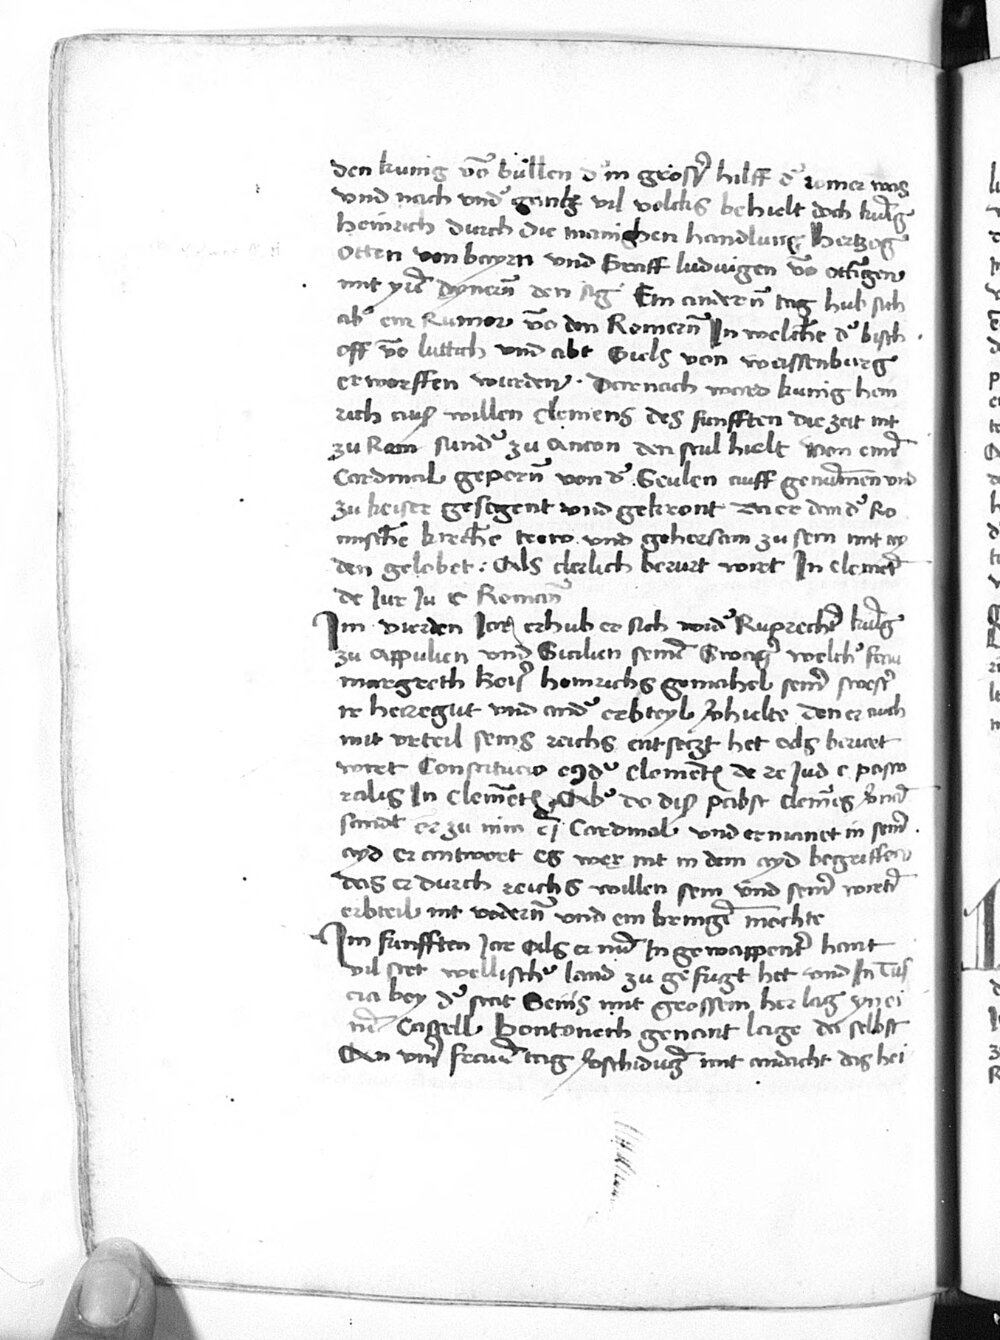 den kunig võ büllen d' in groß' hilff d' romer was
vnd nach vnd' gentz vil volcks behielt doch ku͂ig
heinrich durch die manighen handlung Hertzog
Otten von bayrn vnd Graff ludwigen võ ottingen
mit yre͂ dynern͂ den sig Em andern͂ tag hub sich
ab' ein Rumor võ den Romern͂ In welche͂ d' bisch
off võ luttich vnd abt Giels von weissenburg
erworffen wurden · Darnach ward kunig hein
rich auß willen clemens des funfften die zeit nit
zu Rom sund' zu Ancon den stul hielt von eine͂
Cardinal gepern͂ von d' Seulen auff genu͂men vnd
zu keiser gesegent vnd gekront Da er dan d' Ro
mische͂ kirche͂ trew vnd gehorsam zu sein mit ay
den gelobet : Als clerlich berurt wirt In clemet͂
de Jur Ju
Im vierden Jar erhub er sich wid' Ruprecht͂ ku͂ig
zu Appulien vnd Sicilien seine͂ welch' frau
margreth keiß' heinrichs gemahel sein' swest'
ir heiregut vnd and' erbteyl v'hielte den er auch
mit vrteil seins reichs entseczt het Als beruret
wirt Constitucio de re Jud c pasto
ralis In Clemet͂ Ab' do diß pabst clemens v'nam
sandt er zu im Cardinal vnd ermanet in sein'
ayd Er antwort Es wer nit in dem ayd begriffen
das er durch reichs willen sein vnd sein'
erbteil nit vodern͂ vnd ein bringe͂ mochte
Im funfften Jar Als er mit In gewappent' hant
vil stet wellisch' land zu gefugt het vnd In Tus
cia bey d' stat Senis mit grossem her lag yn ei
ne͂ Castell Bontoneth genant lage da selbst
An vns' frawe͂ tag v'schidu͂g mit andacht das hei